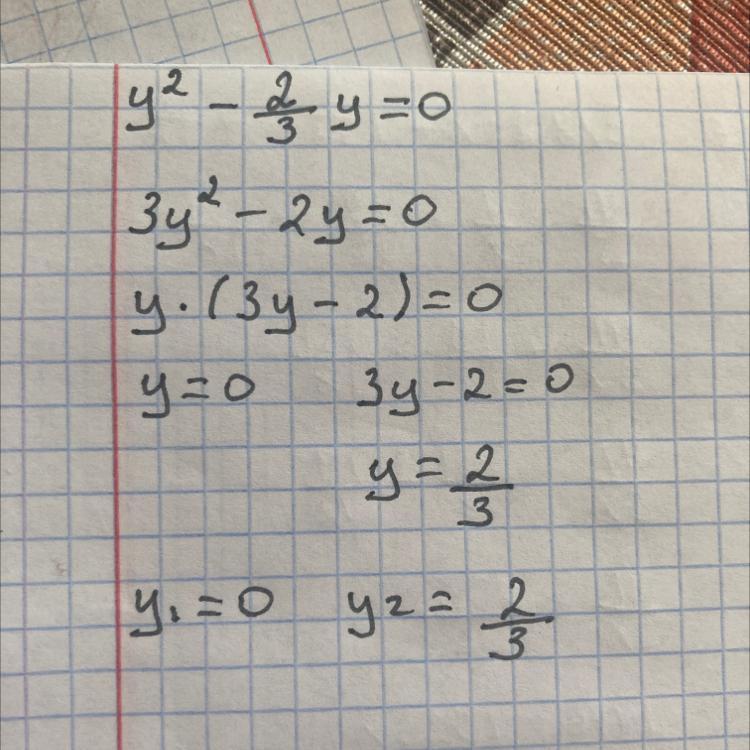 y² - 2/3 y = 0
3y² - 2y = 0
y · (3y - 2) = 0
y = 0 3y - 2 = 0
y = 2/3
y₁ = 0 y₂ = 2/3